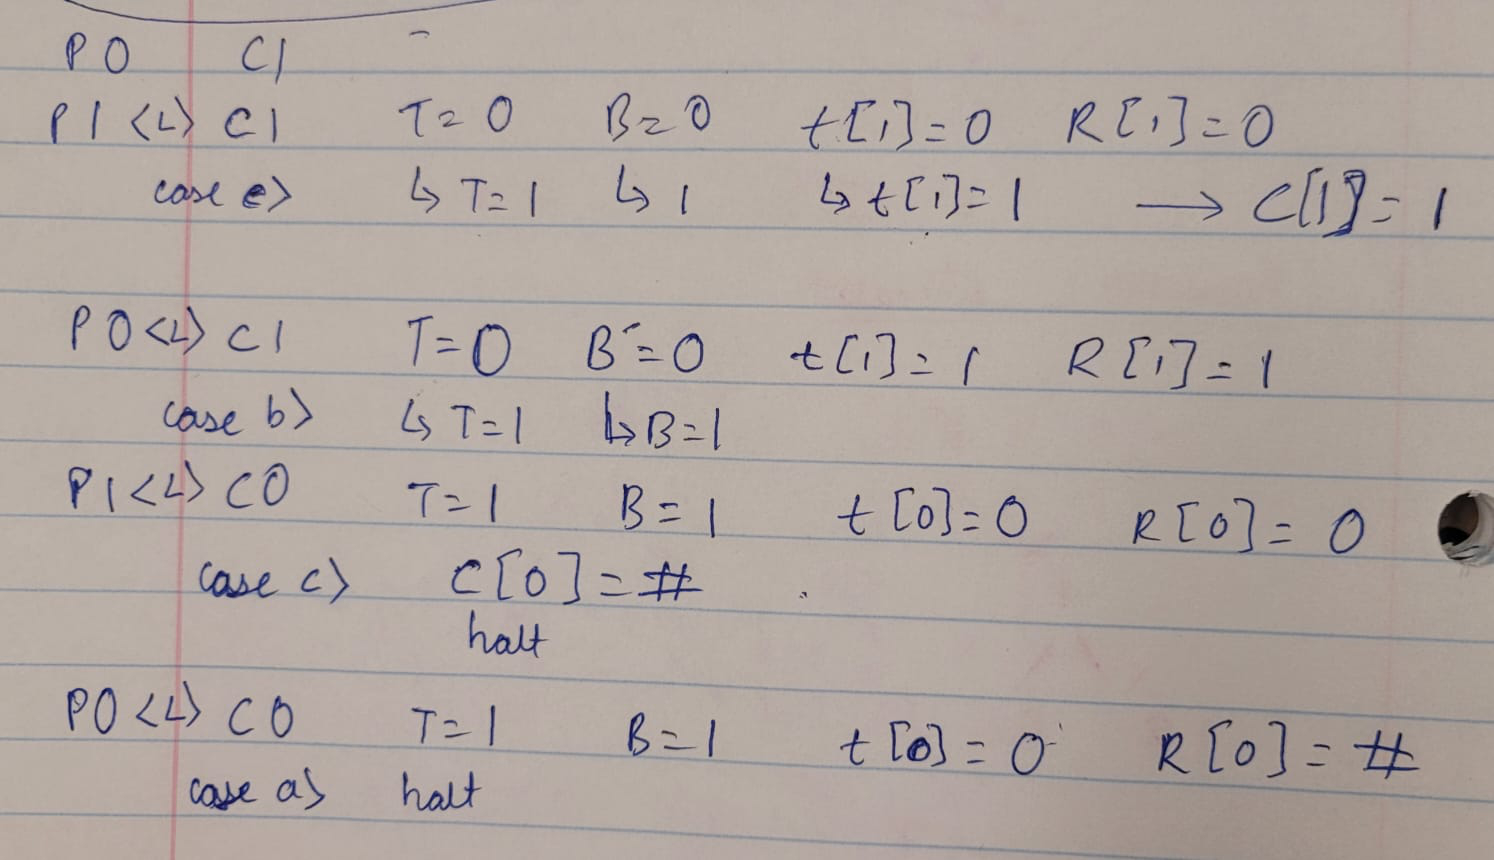 P0 C1 -
P1 <L> C1 T=0 B=0 t[1]=0 R[1]=0
case e> ↳ T=1 ↳ 1 ↳ t[1]=1 → C[1]=1
P0 <L> C1 T=0 B=0 t[1]=1 R[1]=1
case b> ↳ T=1 ↳ B=1
P1 <L> C0 T=1 B=1 t[0]=0 R[0]=0
case c> C[0]=#
halt
P0 <L> C0 T=1 B=1 t[0]=0 R[0]=#
case a> halt